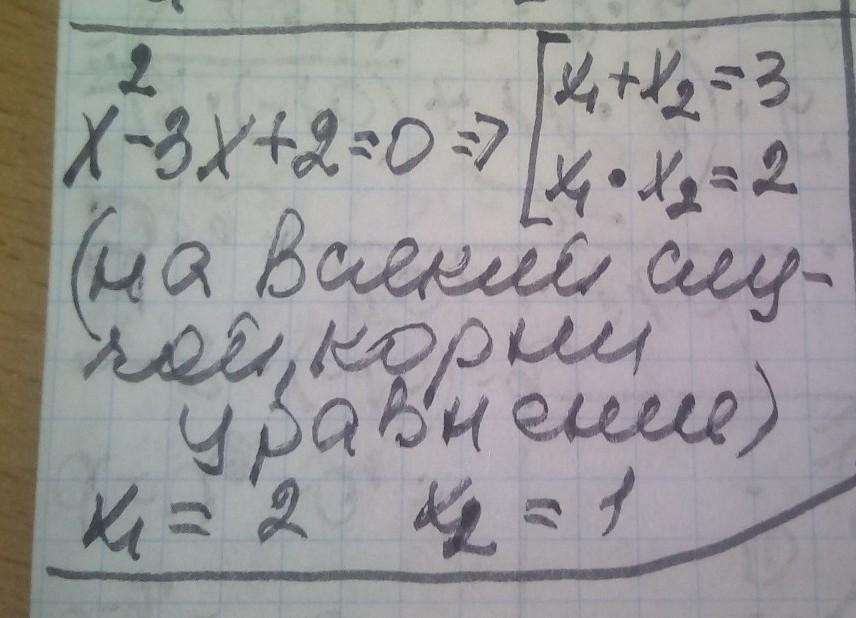 x²-3x+2=0 => [x₁+x₂=3
x₁•x₂=2
(на всякий слу-
чай, корни
уравнения)
x₁ = 2 x₂ = 1